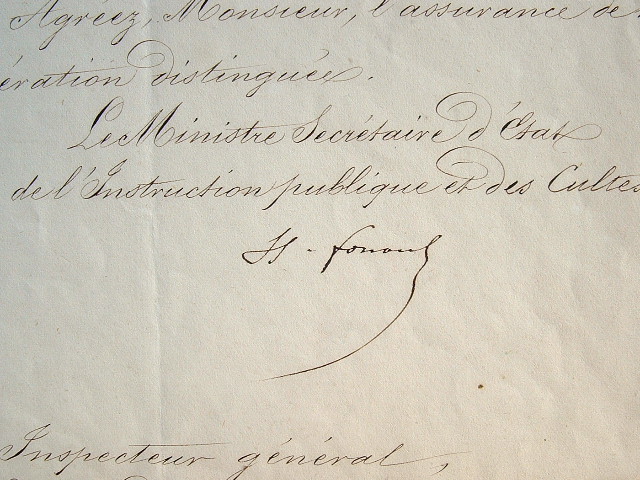 Agréez, Monsieur, l'assurance de
ération distinguée.
Le Ministre Secrétaire d'État
de l'Instruction publique et des Cultes
H. fortoul
Inspecteur général,